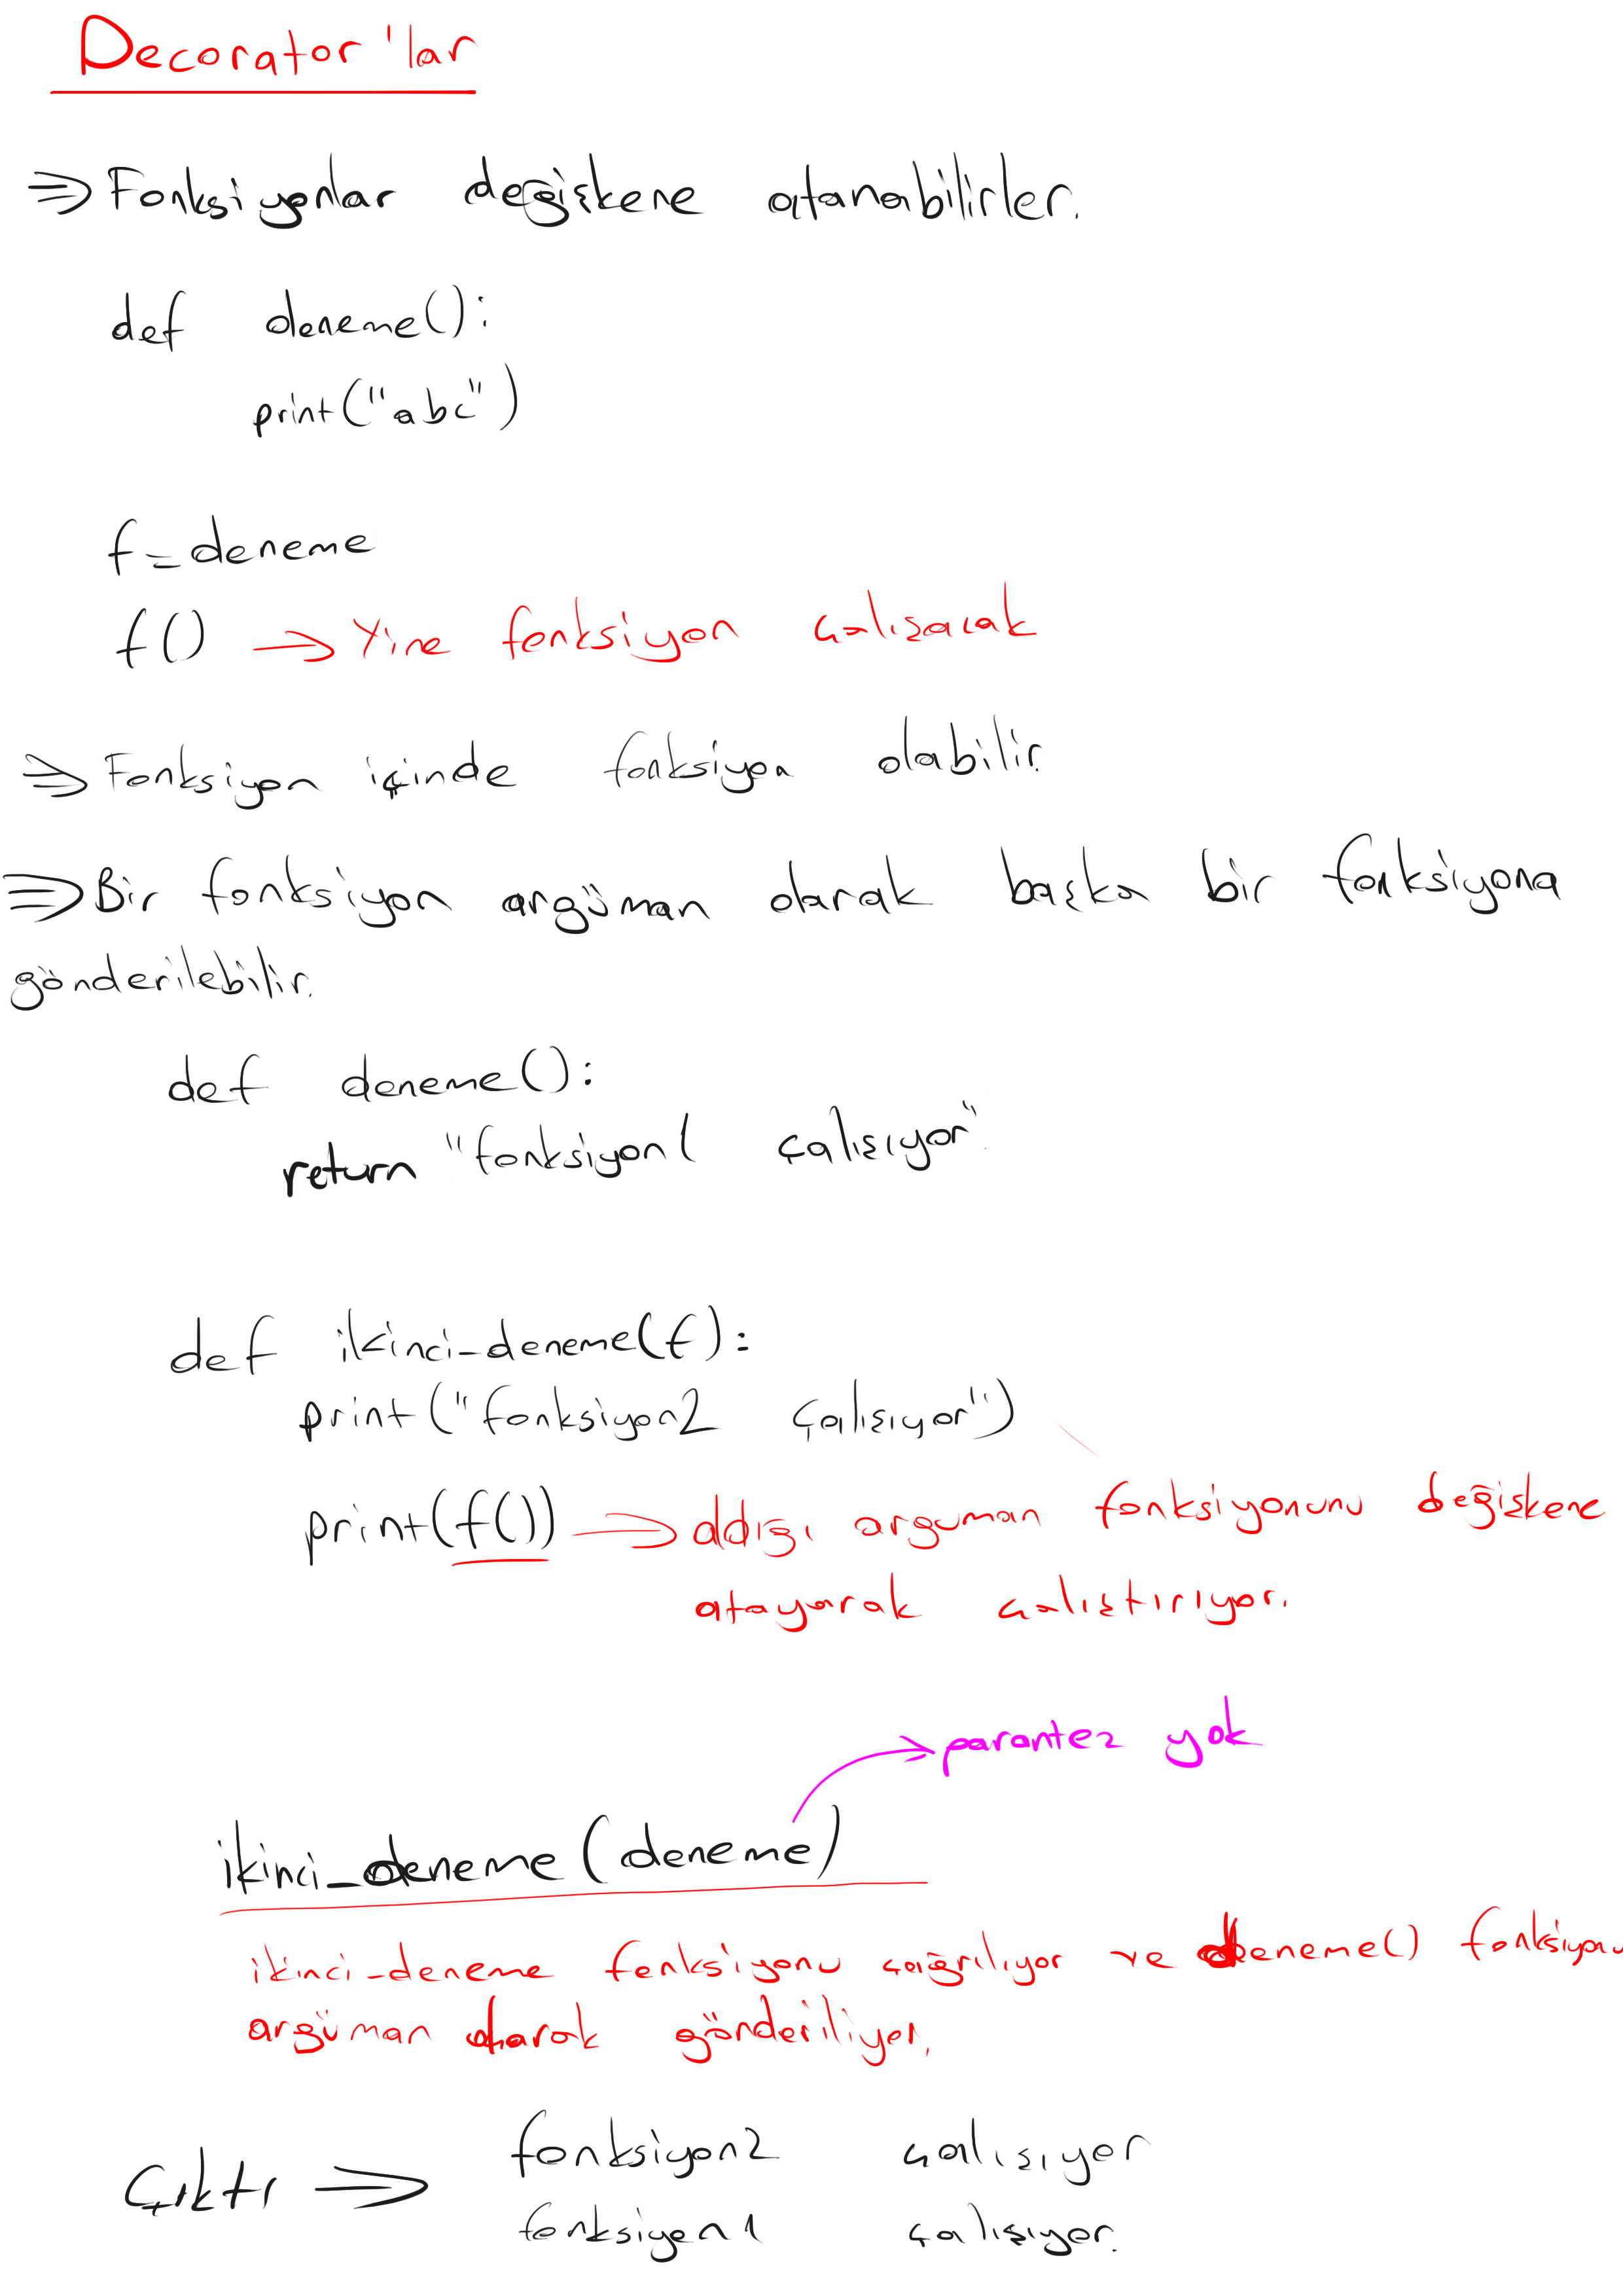 Decorator'lar
⇒ Fonksiyonlar değişkene atanabilirler.
def deneme():
print("abc")
f = deneme
f() → Yine fonksiyon çalışacak
⇒ Fonksiyon içinde fonksiyon olabilir.
⇒ Bir fonksiyon argüman olarak başka bir fonksiyona
gönderilebilir.
def deneme():
return "fonksiyon1 çalışıyor"
def ikinci_deneme(f):
print("fonksiyon2 çalışıyor")
print(f()) → aldığı arguman fonksiyonunu değişkene
atayarak çalıştırıyor.
→ parantez yok
ikinci_deneme(deneme)
ikinci_deneme fonksiyonu çağrılıyor ve deneme() fonksiyonu
argüman olarak gönderiliyor.
Çıktı ⇒ fonksiyon2 çalışıyor
fonksiyon1 çalışıyor.